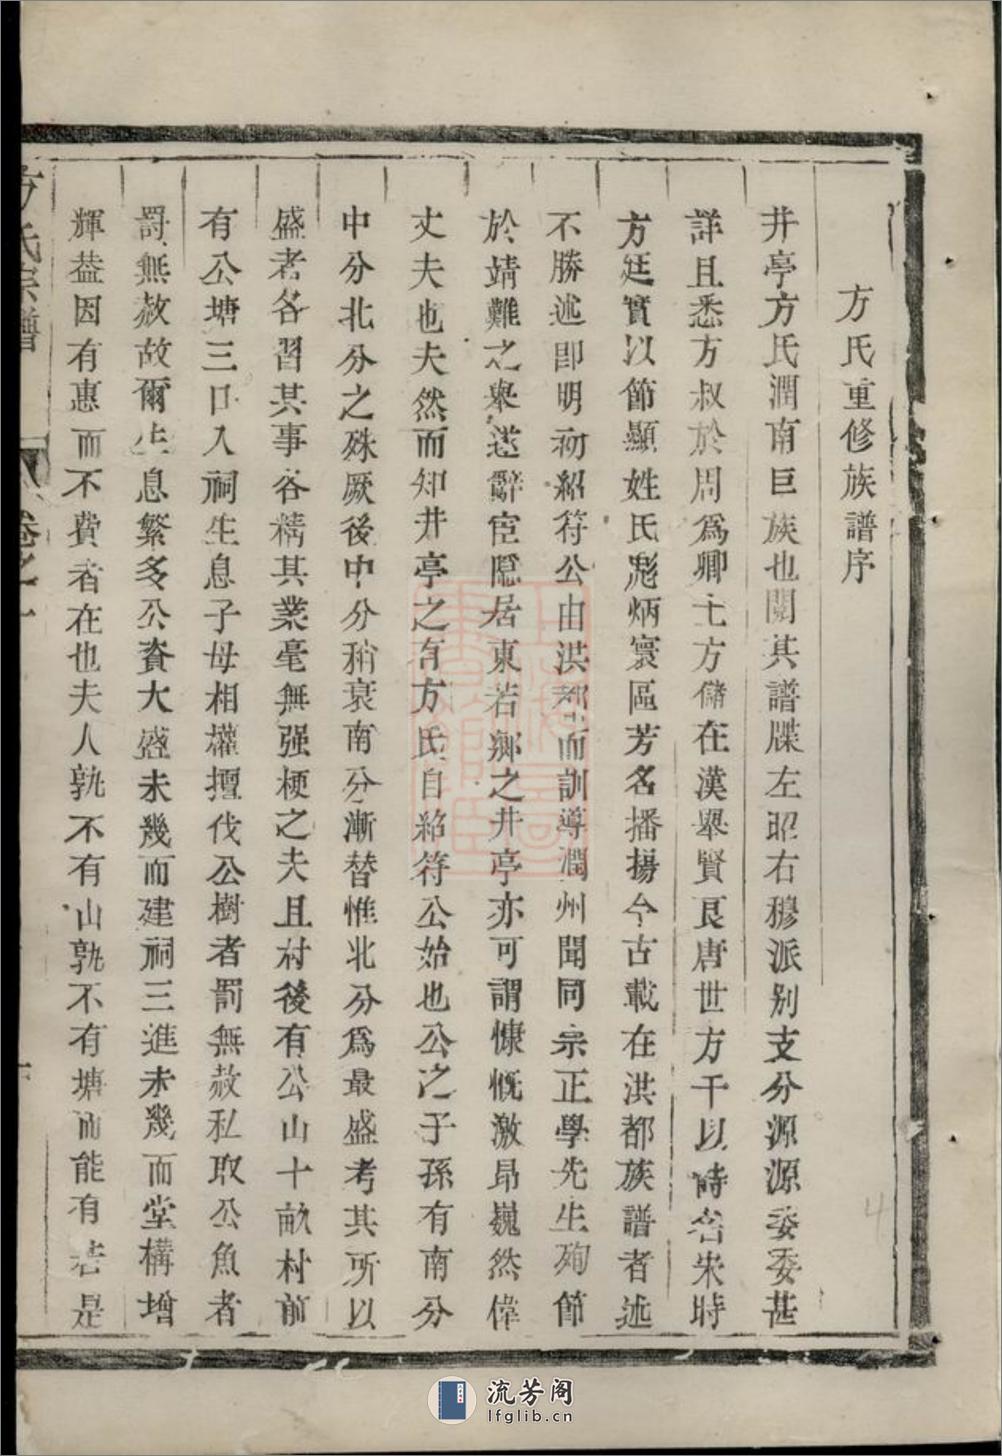 方氏重修族譜序
井亭方氏潤南巨族也閱其譜牒左昭右穆派別支分源源委委甚
詳且悉方叔於周爲卿士方儲在漢舉賢良唐世方干以詩名宋時
方廷實以節顯姓氏彪炳寰區芳名播揚今古載在洪都族譜者述
不勝述卽明初紹符公由洪都而訓導潤州聞同宗正學先生殉節
於靖難之舉遂辭宦隱居東若鄉之井亭亦可謂慷慨激昂巍然偉
丈夫也夫然而知井亭之有方氏自紹符公始也公之子孫有南分
中分北分之殊厥後中分稍衰南分漸替惟北分爲最盛考其所以
盛者各習其事各精其業毫無强梗之夫且村後有公山十畝村前
有公塘三口入祠生息子母相權擅伐公樹者罰無赦私取公魚者
罰無赦故爾生息繁多公資大盛未幾而建祠三進未幾而堂構增
輝葢因有惠而不費者在也夫人孰不有山孰不有塘而能有若是
方氏宗譜 卷之一
流芳阁
lfglib.cn